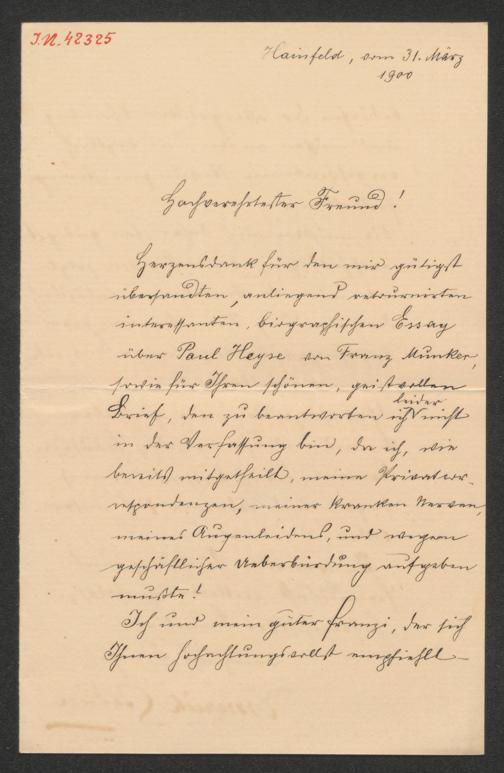 I.N. 42325
Hainfeld, vom 31. März
1900
Hochverehrtester Freund!
Herzensdank für den mir gütigst
übersandten, anliegend retournirten
interessanten, biographischen Essay
über Paul Heyse von Franz Munker,
sowie für Ihren schönen, geistvollen
Brief, den zu beantworten ich leider nicht
in der Verfassung bin, da ich, wie
bereits mitgetheilt, meine Privatcor-
respondenzen, meiner kranken Nerven,
meines Augenleidens, und wegen
geschäftlicher Ueberbürdung aufgeben
mußte!
Ich und mein guter Franzi, der sich
Ihnen hochachtungsvollst empfiehlt –